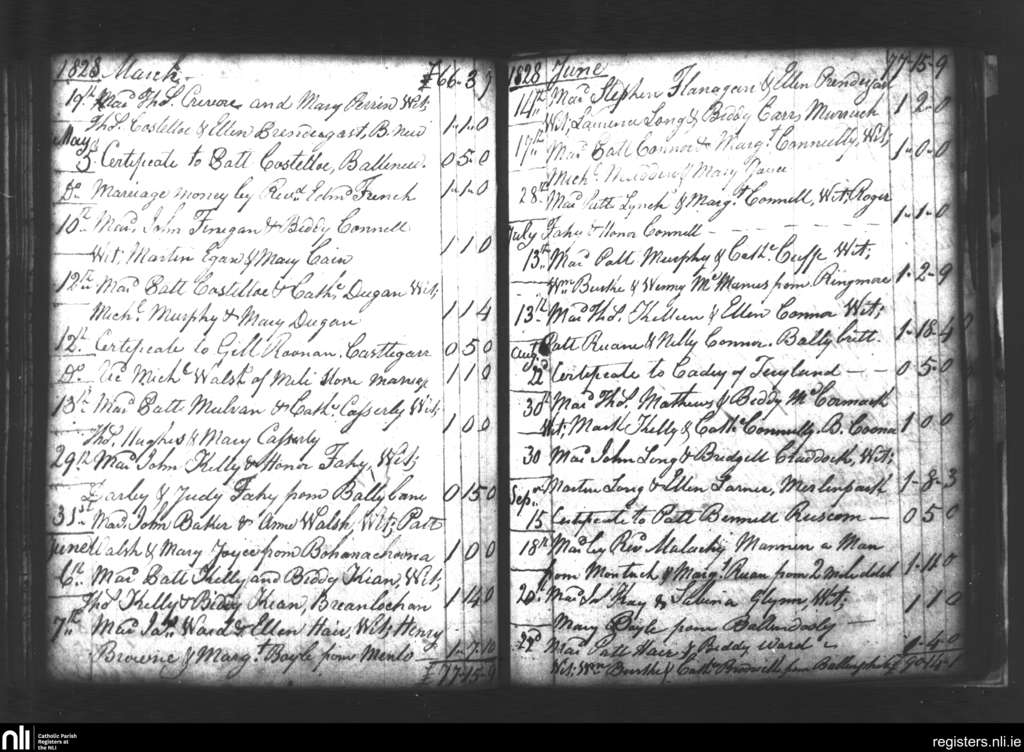 1828 March £66-3-9
19th Mard Thos. Crevore and Mary Perrin Wit;
Thos. Costelloe & Ellen Brendergast, B. 1-1-0
May
5 Certificate to Patt Costelloe, 0-5-0
Do Marriage money by Revd. Edmd French 1-1-0
10th Mard John Finegan & Biddy Connell
Wit; Martin Egan & Mary Cain 1 1 0
12th Mard Patt Costelloe & Cathe Dugan Wit;
Michl. Murphy & Mary Dugan 1 1 4
12th Certificate to Gill Roonan, Castlegarr 0 5 0
Do Michl Walsh of Mili Stone marriage 1 1 0
13th Mard Patt Mulvan & Cathe Casserly Wit;
Thos. Hughes & Mary Casserly 1 0 0
29th Mard John Kelly & Honor Fahy, Wit;
Darley & Judy Fahy from Ballybane 0 15 0
31st Mard John Baker & Anne Walsh, Wit; Patt
June Walsh & Mary Joyce from Bohanachoona 1 0 0
6th Mard Patt Kelly and Biddy Kean, Wit;
Thos Kelly & Biddy Kean, Breanlochan 1 4 0
7th Mard Jas. Ward & Ellen Hair, Wit; Henry
Browne & Margt Boyle from Menlo 1-7-10
£77-15-9
1828 June 77-15-9
14th Mard Stephen Flanagan & Ellen Prendergast
Wit; Laurence Long & Biddy Carr, 1-2-0
17th Mard Patt Connor & Margt Connelly, Wit;
Michl. & Mary Joyce 1-0-0
28th Mard Patt Lynch & Margt Connell, Wit; Roger
July Fahy & Honor Connell 1-1-0
13th Mard Patt Murphy & Cathe Cuffe Wit;
Wm Burke & Winny McManus from Ringmore 1-2-9
13th Mard Thos. Killeen & Ellen Connor Wit;
Patt Ruane & Nelly Connor. Ballybritt. 1-18-4
Augt
22d Certificate to Cadey of 0-5-0
30th Mard Thos. Mathews & Biddy McCormack
Wit; Mark Kelly & Cathe Connelly. B. Coona 1 0 0
30 Mard John Long & Bridgett Craddock, Wit;
Martin Long & Ellen Larner, Merlinpark 1-8-3
Sepr
15 Certificate to Patt Bennell Ruscom 0 5 0
18th Mard by Revd Malachy Mannen a Man
from Montuck & Margt Ruan from 1-1-0
20th Mard Kay & Sabina Glynn, Wit;
Mary Doyle from 1 1 0
22d Mard Patt Hair & Biddy Ward 1-4-0
Wit; Wm Bourke & Cathe from 90-14-1
nli Catholic Parish
Registers at
the NLI
registers.nli.ie